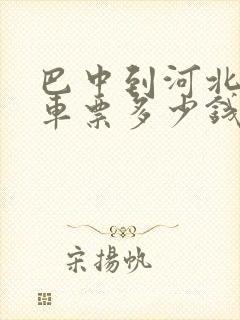 巴中到河北
車票多少錢
宋揚帆